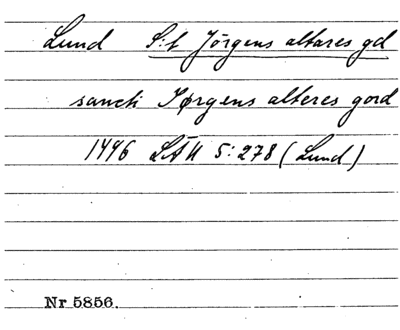 Lund S:t Jörgens altares gd
sancti Jørgens alteres gord
1446 LÄU 5:278 (Lund)
Nr 5856.